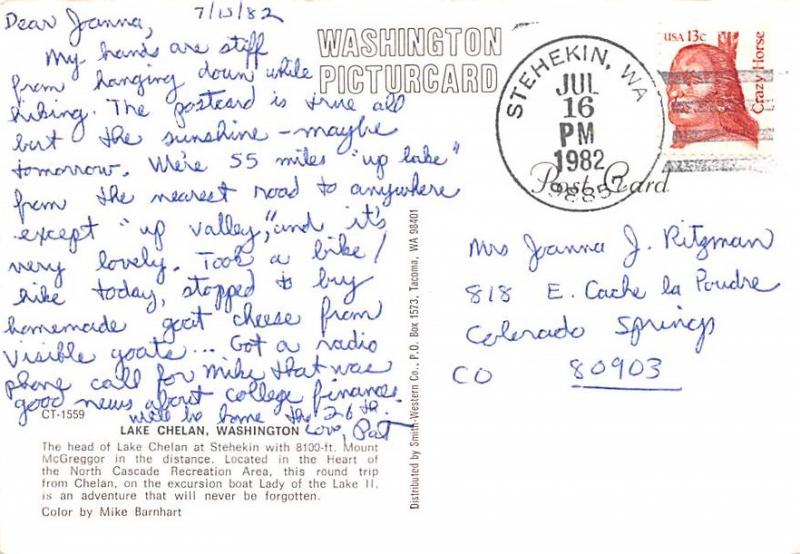 7/15/82
Dear Joanna,
My hands are stiff
from hanging down while
hiking. The postcard is true all
but the sunshine - maybe
tomorrow. We're 55 miles "up lake"
from the nearest road to anywhere
except "up valley," and it's
very lovely. Took a bike/
hike today, stopped to buy
homemade goat cheese from
visible goats... Got a radio
phone call for Mike that was
good news about college finances.
We'll be home the 26th.
Love, Pat
CT-1559
LAKE CHELAN, WASHINGTON
The head of Lake Chelan at Stehekin with 8100-ft. Mount
McGreggor in the distance. Located in the Heart of
the North Cascade Recreation Area, this round trip
from Chelan, on the excursion boat Lady of the Lake II,
is an adventure that will never be forgotten.
Color by Mike Barnhart
WASHINGTON
PICTURCARD
Distributed by Smith-Western Co., P.O. Box 1573, Tacoma, WA 98401
STEHEKIN, WA
JUL
16
PM
1982
98852
Post Card
USA 13c
Crazy Horse
Mrs Joanna J. Ritzman
818 E. Cache la Poudre
Colorado Springs
CO 80903